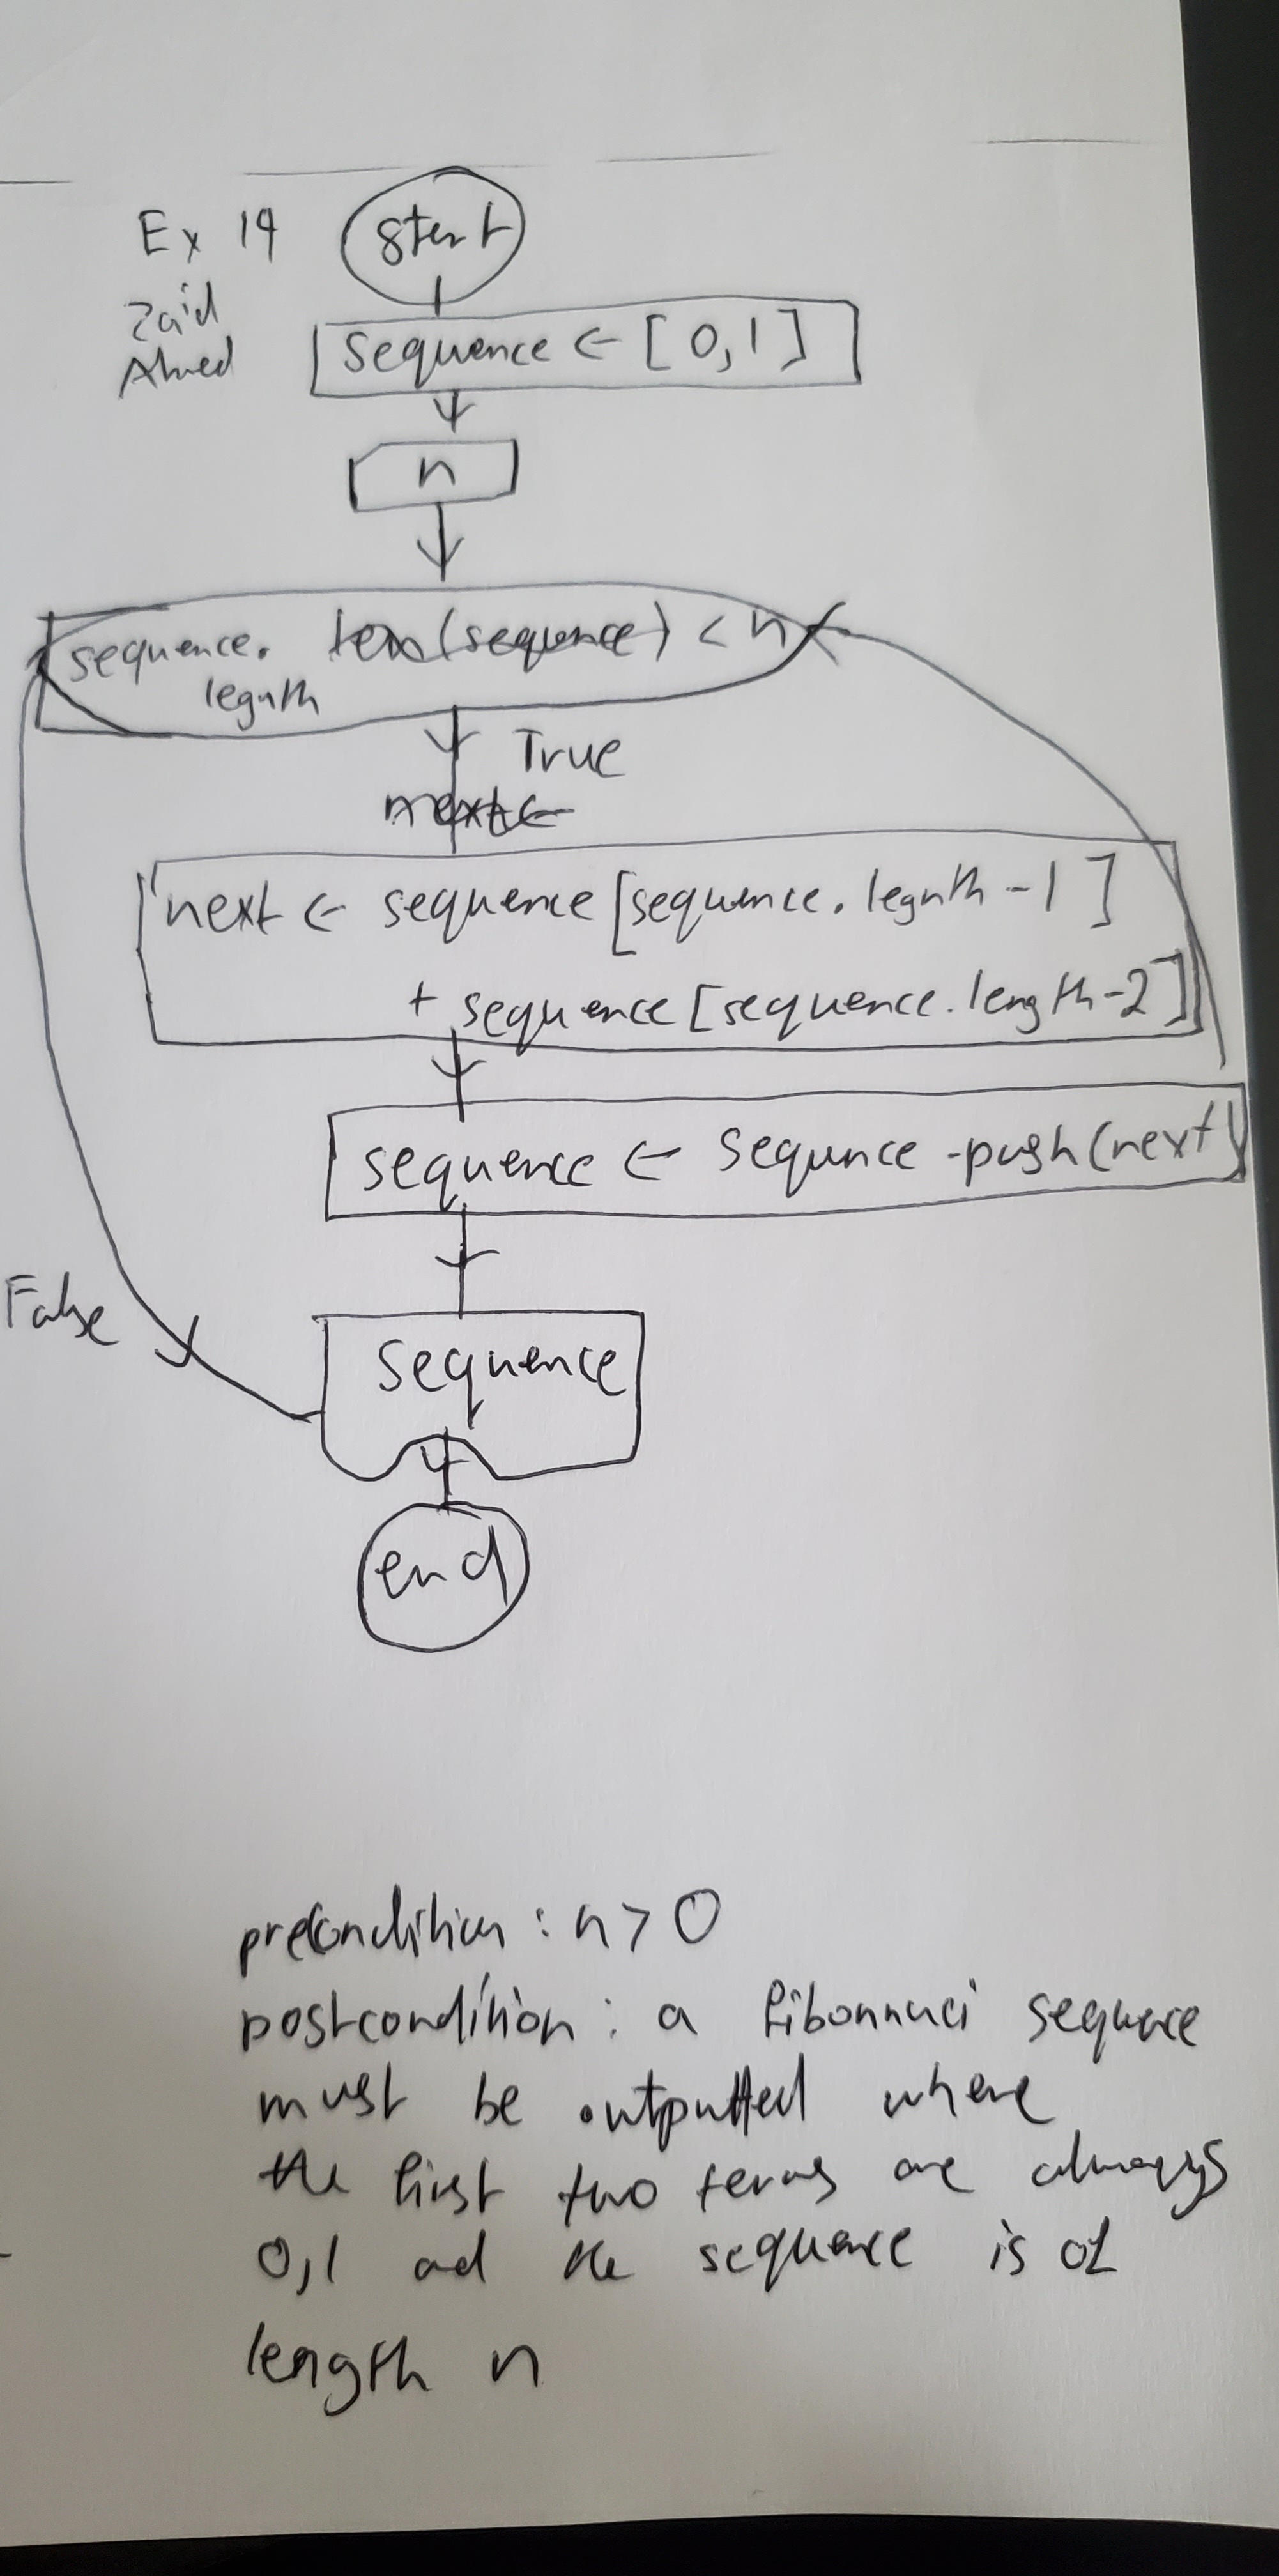 Ex 19
Zaid
Ahmed
start
sequence ← [0,1]
n
sequence. len(sequence) < n
legnth
True
next ←
next ← sequence[sequence.legnth -1]
+ sequence[sequence.length-2]
sequence ← sequnce .push(next)
False
sequence
end
precondition : n > 0
postcondition : a fibonnaci sequence
must be outputted where
the first two terms are always
0,1 and the sequence is of
length n